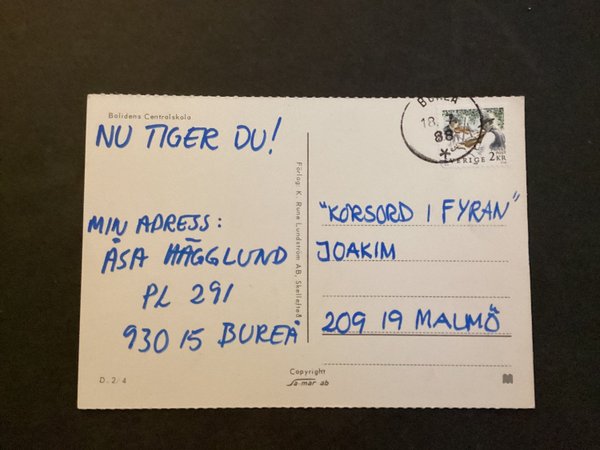 Bolidens Centralskola
NU TIGER DU!
MIN ADRESS:
ÅSA HÄGGLUND
PL 291
930 15 BUREÅ
D. 2/4
Förlag: K. Rune Lundström AB, Skellefteå
Copyright
Sa-mar ab
BUREÅ
18.
88
SVERIGE 2 KR
"KORSORD I FYRAN"
JOAKIM
209 19 MALMÖ